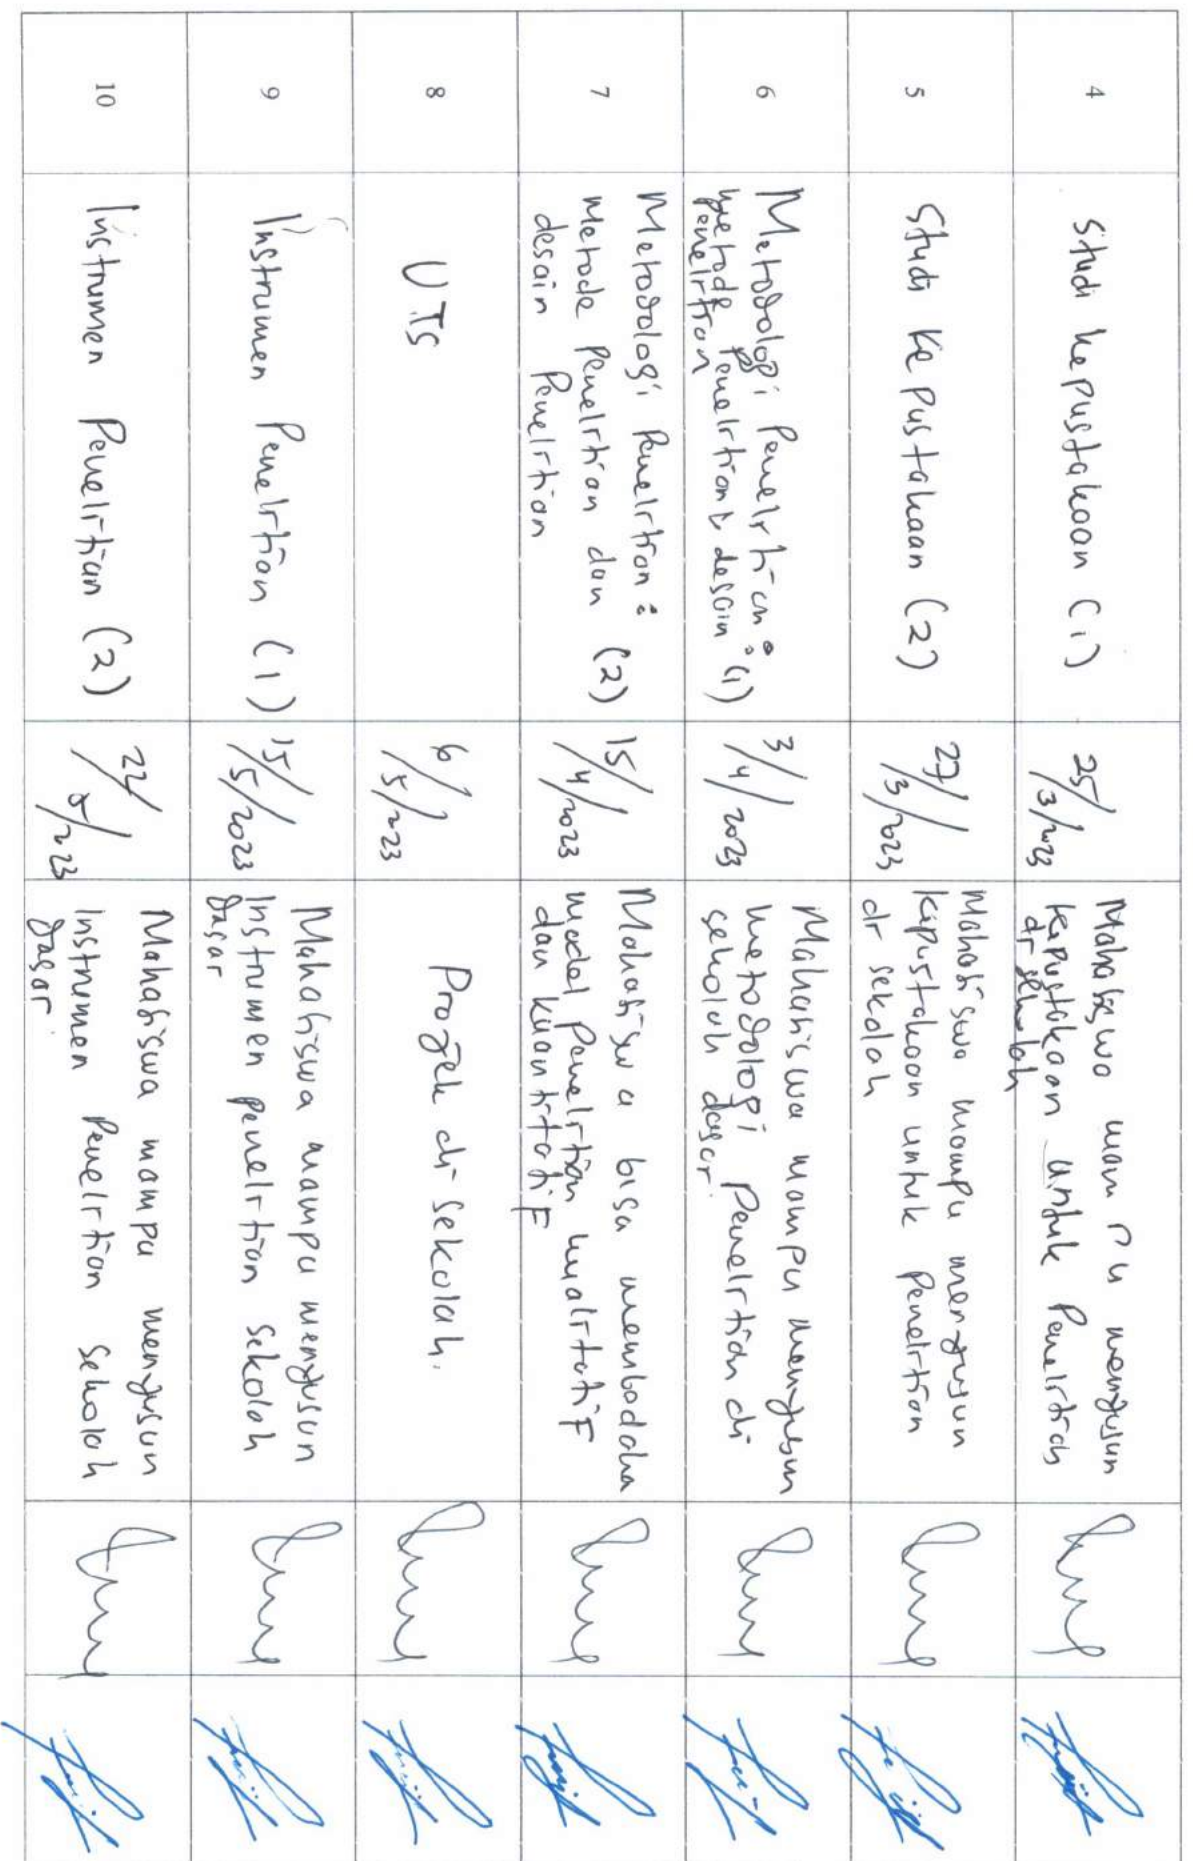 4
Studi kepustakaan (1)
25/3/2023
Mahasiswa mampu menyusun
kepustakaan untuk Penelitian
di sekolah
5
Studi Kepustakaan (2)
27/3/2023
Mahasiswa mampu menyusun
kepustakaan untuk Penelitian
di sekolah
6
Metodologi Penelitian :
metode Penelitian & desain (1)
Penelitian
3/4/2023
Mahasiswa mampu menyusun
metodologi Penelitian di
sekolah dasar.
7
Metodologi Penelitian :
Metode Penelitian dan (2)
desain Penelitian
15/4/2023
Mahasiswa bisa membedaka
model Penelitian kualitatif
dan kuantitatif
8
UTS
6/5/2023
Projek di sekolah.
9
Instrumen Penelitian (1)
15/5/2023
Mahasiswa mampu menyusun
Instrumen penelitian sekolah
dasar
10
Instrumen Penelitian (2)
22/5/2023
Mahasiswa mampu menyusun
Instrumen Penelitian sekolah
dasar.